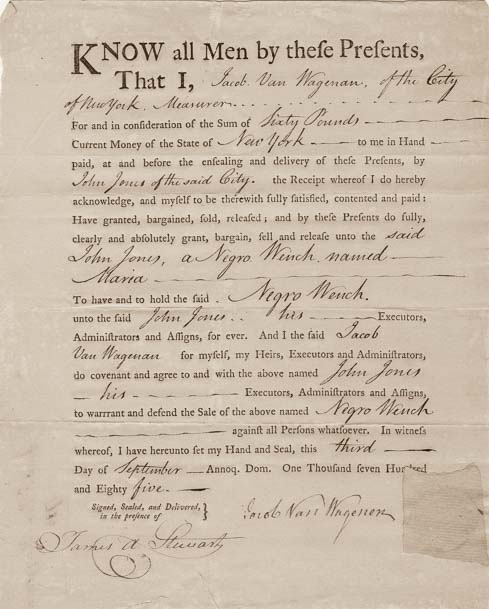 KNOW all Men by theſe Preſents,
That I, Jacob Van Wagenan, of the City
of New York, Measurer
For and in conſideration of the Sum of Sixty Pounds
Current Money of the State of New York to me in Hand
paid, at and before the enſealing and delivery of theſe Preſents, by
John Jones of the said City. the Receipt whereof I do hereby
acknowledge, and myſelf to be therewith fully ſatisfied, contented and paid:
Have granted, bargained, ſold, releaſed; and by theſe Preſents do fully,
clearly and abſolutely grant, bargain, ſell and releaſe unto the said
John Jones, a Negro Wench named
Maria
To have and to hold the ſaid . Negro Wench.
unto the ſaid John Jones .. his Executors,
Adminiſtrators and Aſſigns, for ever. And I the ſaid Jacob
Van Wagenan for myſelf, my Heirs, Executors and Adminiſtrators,
do covenant and agree to and with the above named John Jones
his Executors, Adminiſtrators and Aſſigns,
to warrrant and defend the Sale of the above named Negro Wench
againſt all Perſons whatſoever. In witneſs
whereof, I have hereunto ſet my Hand and Seal, this third
Day of September Annoq. Dom. One Thouſand ſeven Hundred
and Eighty five.
Signed, Sealed, and Delivered,
in the preſence of } Jacob Van Wagenen
James A Stewart